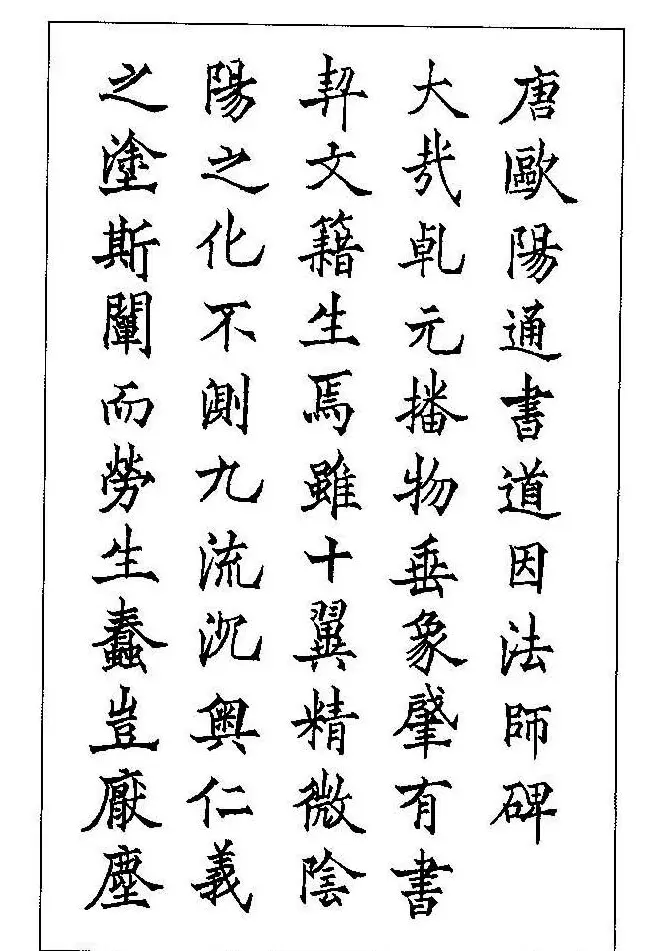 唐歐陽通書道因法師碑
大哉乹元播物垂象肇有書
契文籍生焉雖十翼精微陰
陽之化不測九流沉奧仁義
之塗斯闡而勞生蠢豈厭塵